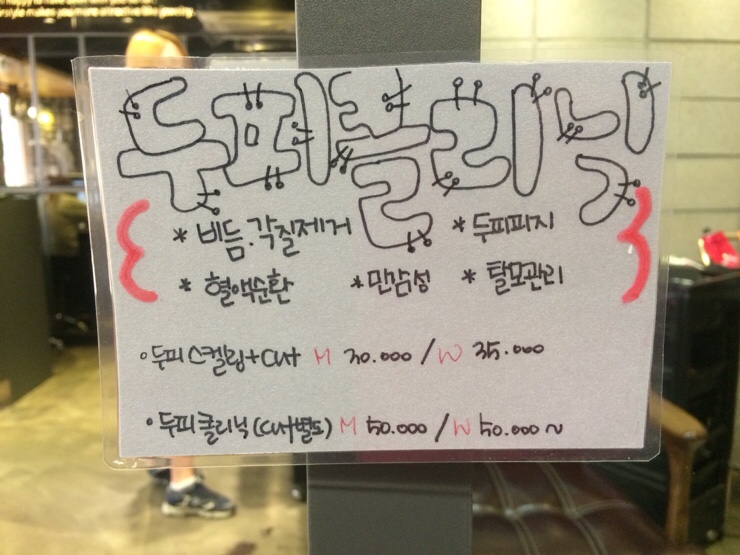 두피클리닉
* 비듬.각질제거 * 두피피지
* 혈액순환 * 민감성 * 탈모관리
◦ 두피스켈링+Cut M 30.000 / W 35.000
◦ 두피클리닉(Cut별도) M 50.000 / W 50.000~